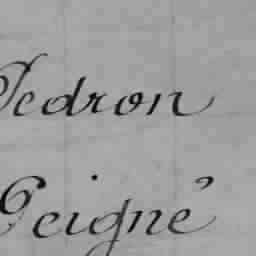 Pedron
Peigné